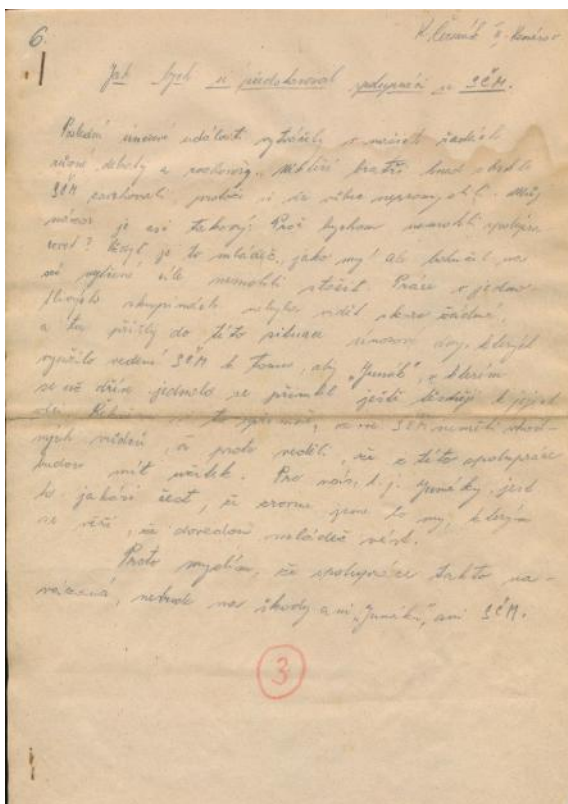 6.
K. II. Komárov
Jak bych si představoval spolupráci s SČM.
Poslední únorové události vytvářely v našich řadách
různé debaty a rozhovory. Někteří bratři hned
SČM zavrhovali protože si věc vůbec nepromysleli. Můj
názor je asi takový: Proč bychom nemohli spolupra-
covat? Vždyť je to mládež, jako my! Ale bohužel na
své cíle nemohli stačit. Práce v jedno-
tlivých skupinách nebylo vidět skoro žádné,
a tu přišly do této situace únorové dny, kterých
využilo vedení SČM k tomu, aby „Junák", o kterém
se už dříve jednalo se přimkl ještě těsněji k
to upřímně, že ve SČM neměli vhod-
ných vůdců, a proto viděli, že z této spolupráce
budou mít užitek. Pro nás, t. j. Junáky, jest
to jakási čest, že zrovna jsme to my, kterým
se věří, že dovedou mládež vést.
Proto myslím, že spolupráce takto na-
vázaná, nebude na škodu ani „Junáku", ani SČM.
3